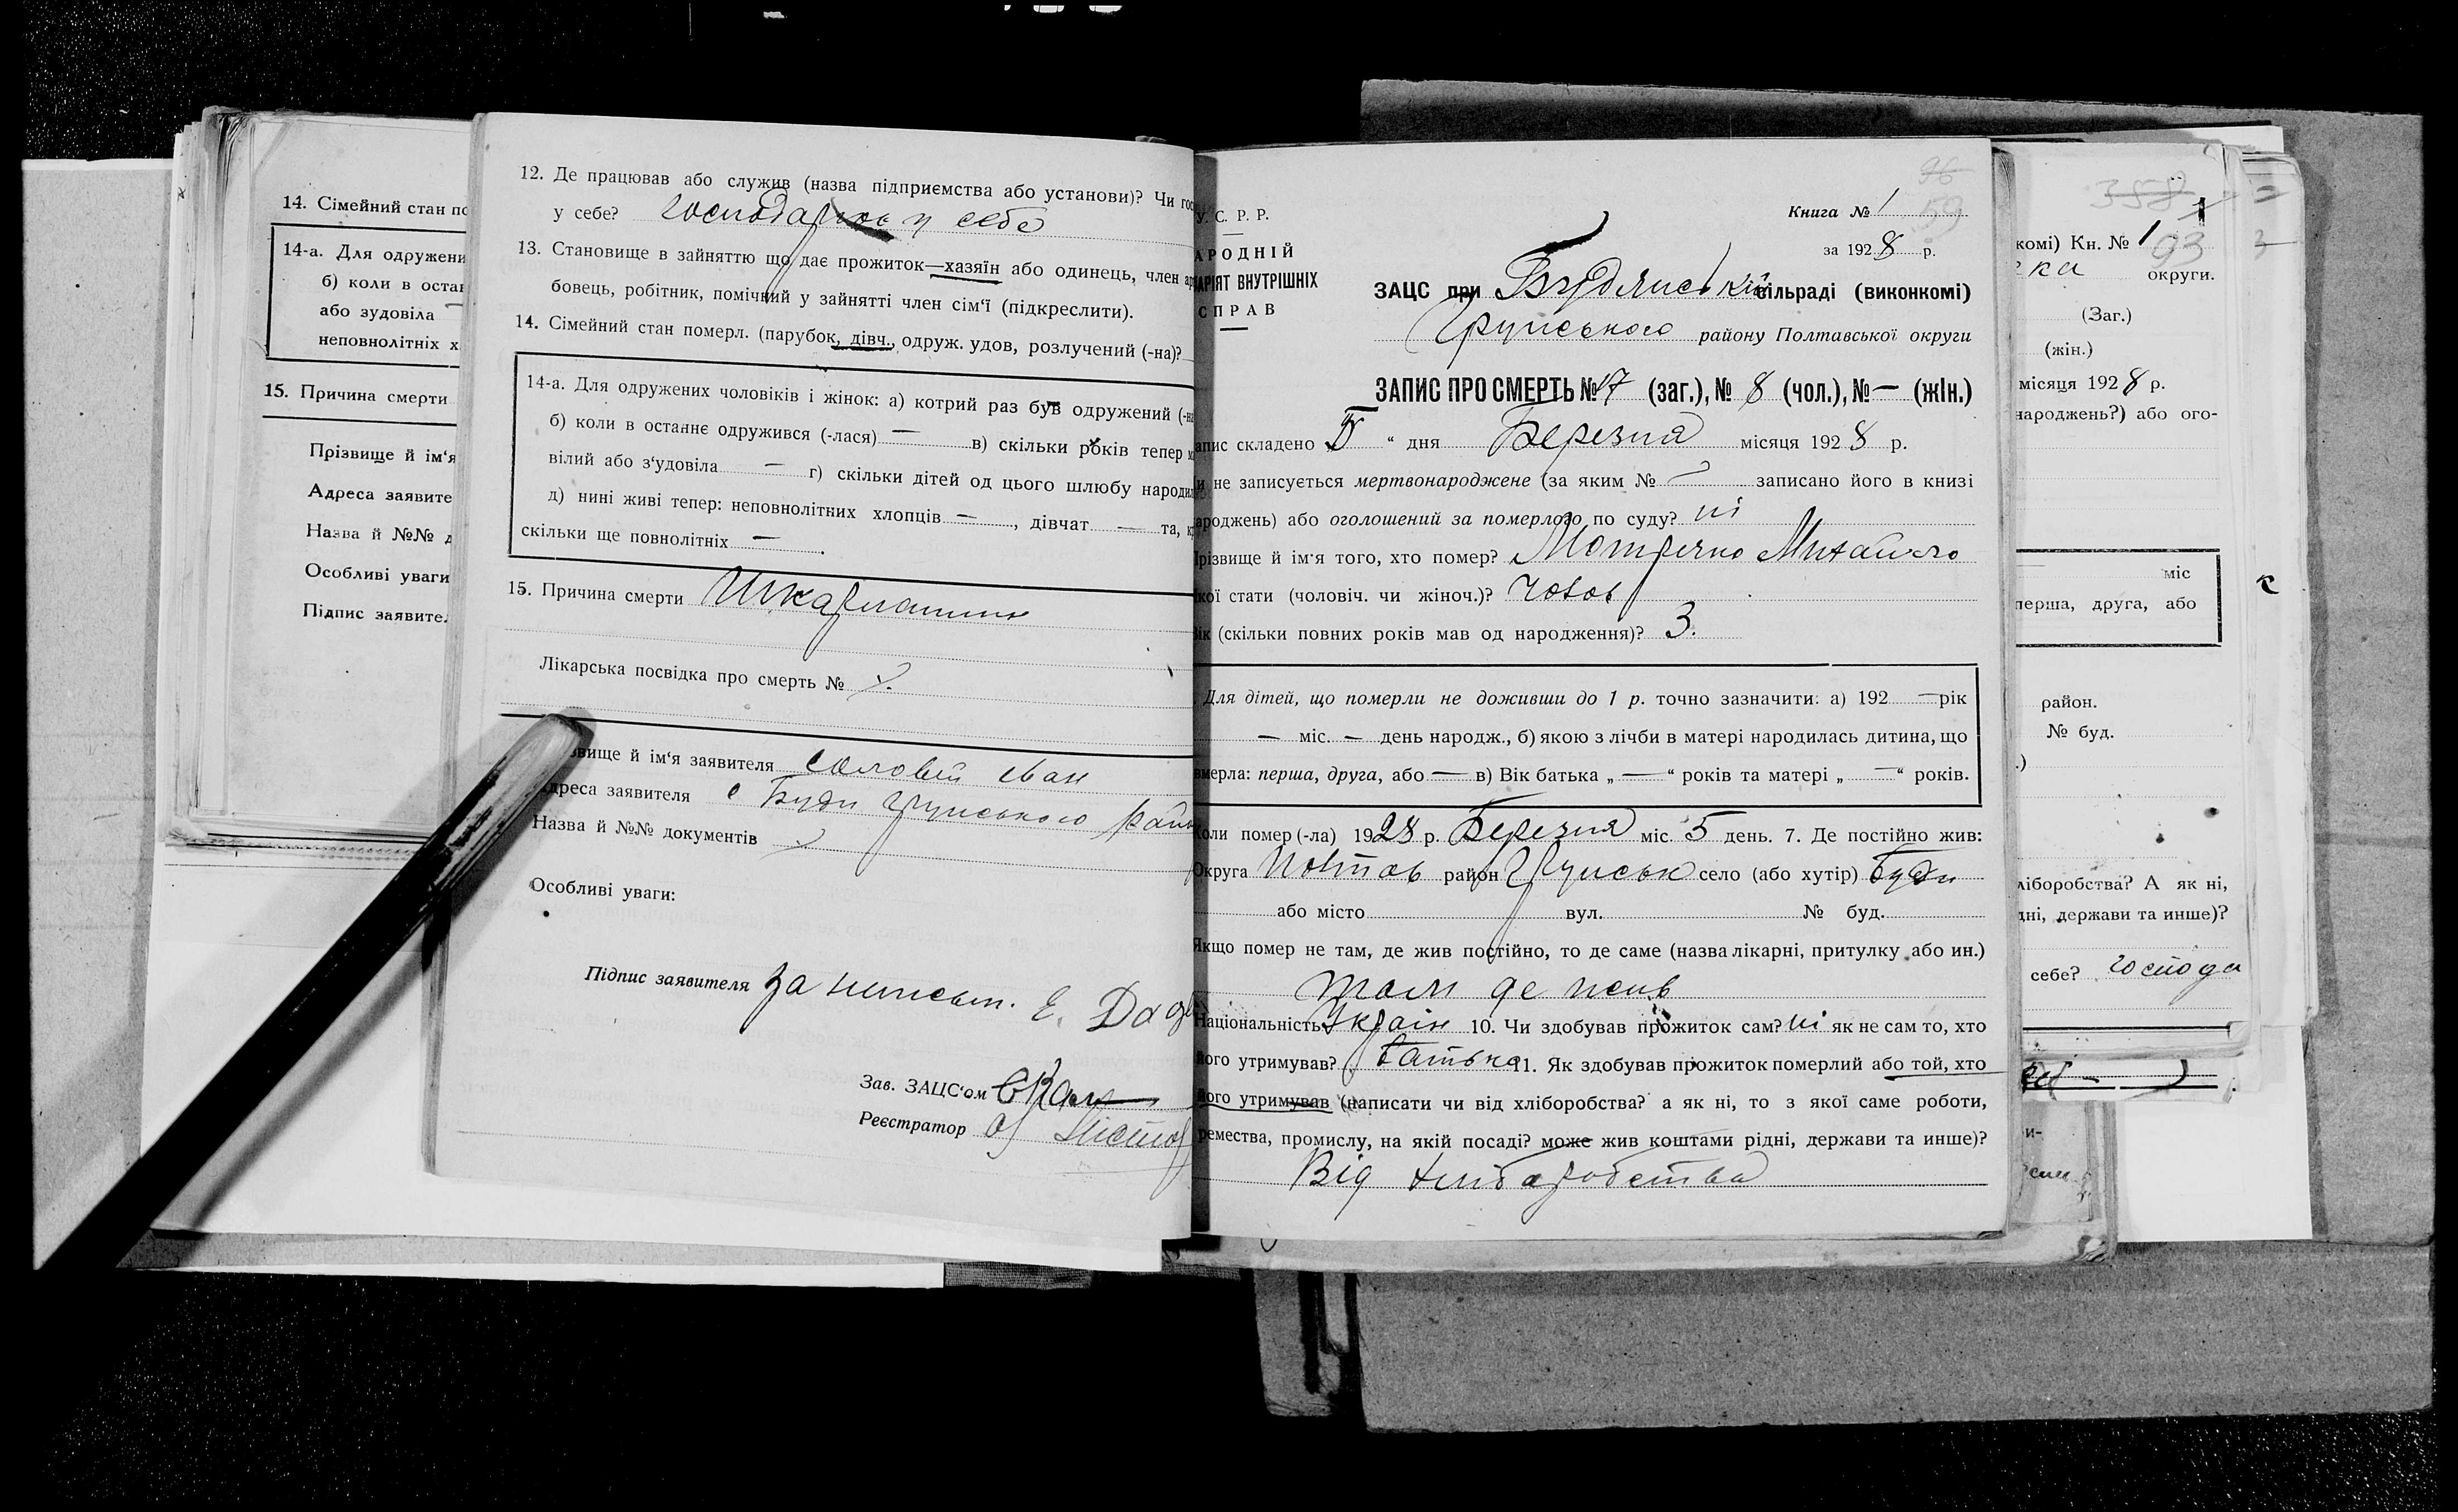 14. Сімейний стан по
14-а. Для одружени
б) коли в остан
або зудовіла
неповнолітніх х
15. Причина смерти
Прізвище й ім‘я
Адреса заявите
Назва й №№ д
Особливі уваги
Підпис заявител
12. Де працював або служив (назва підприємства або установи)? Чи гос
у себе? у себе
13. Становище в зайняттю що дає прожиток—хазяїн або одинець, член ар
бовець, робітник, помічний у зайнятті член сім‘ї (підкреслити).
14. Сімейний стан померл. (парубок, дівч., одруж. удов, розлучений (-на)?
14-а. Для одружених чоловіків і жінок: а) котрий раз був одружений (-на
б) коли в останнє одружився (-лася) — в) скільки років тепер м
вілий або з‘удовіла — г) скільки дітей од цього шлюбу народил
д) нині живі тепер: неповнолітних хлопців — , дівчат — та, к
скільки ще повнолітніх — .
15. Причина смерти Шкарлатина
Лікарська посвідка про смерть №
звище й ім‘я заявителя Соловей Іван
дреса заявителя с Буди Грунського райо
Назва й №№ документів
Особливі уваги:
Підпис заявителя За неписьм. Е. Дад
Зав. ЗАЦС‘ом
Реєстратор
96
У. С. Р. Р.
Книга № 1 59
АРОДНІЙ
за 1928 р.
АРІЯТ ВНУТРІШНІХ
СПРАВ
ЗАЦС при Будянській сільраді (виконкомі)
Грунського району Полтавської округи
ЗАПИС ПРО СМЕРТЬ № 17 (заг.), № 8 (чол.), № — (жін.)
апис складено „5“ дня Березня місяця 1928 р.
и не записується мертвонароджене (за яким № записано його в книзі
ароджень) або оголошений за померлого по суду? ні
Прізвище й ім‘я того, хто помер? Мотричко Михайло
кої стати (чоловіч. чи жіноч.)? Чолов
Вік (скільки повних років мав од народження)? 3.
Для дітей, що померли не доживши до 1 р. точно зазначити: а) 192 — рік
— міс. — день народж., б) якою з лічби в матері народилась дитина, що
вмерла: перша, друга, або — в) Вік батька „ — “ років та матері „ — “ років.
Коли помер (-ла) 1928 р. Березня міс. 5 день. 7. Де постійно жив:
Округа Полтав район Грунськ село (або хутір) Буди
або місто вул. № буд.
Якщо помер не там, де жив постійно, то де саме (назва лікарні, притулку або ин.)
там де жив
Національність Україн 10. Чи здобував прожиток сам? ні як не сам то, хто
його утримував? батько 11. Як здобував прожиток померлий або той, хто
його утримував (написати чи від хліборобства? а як ні, то з якої саме роботи,
ремества, промислу, на якій посаді? може жив коштами рідні, держави та инше)?
Від хліборобства
358
комі) Кн. № 1 93
ка округи.
(Заг.)
(жін.)
місяця 1928 р.
народжень?) або ого-
міс
перша, друга, або
район.
№ буд.
.)
ліборобства? А як ні,
дні, держави та инше)?
себе? господа
и-